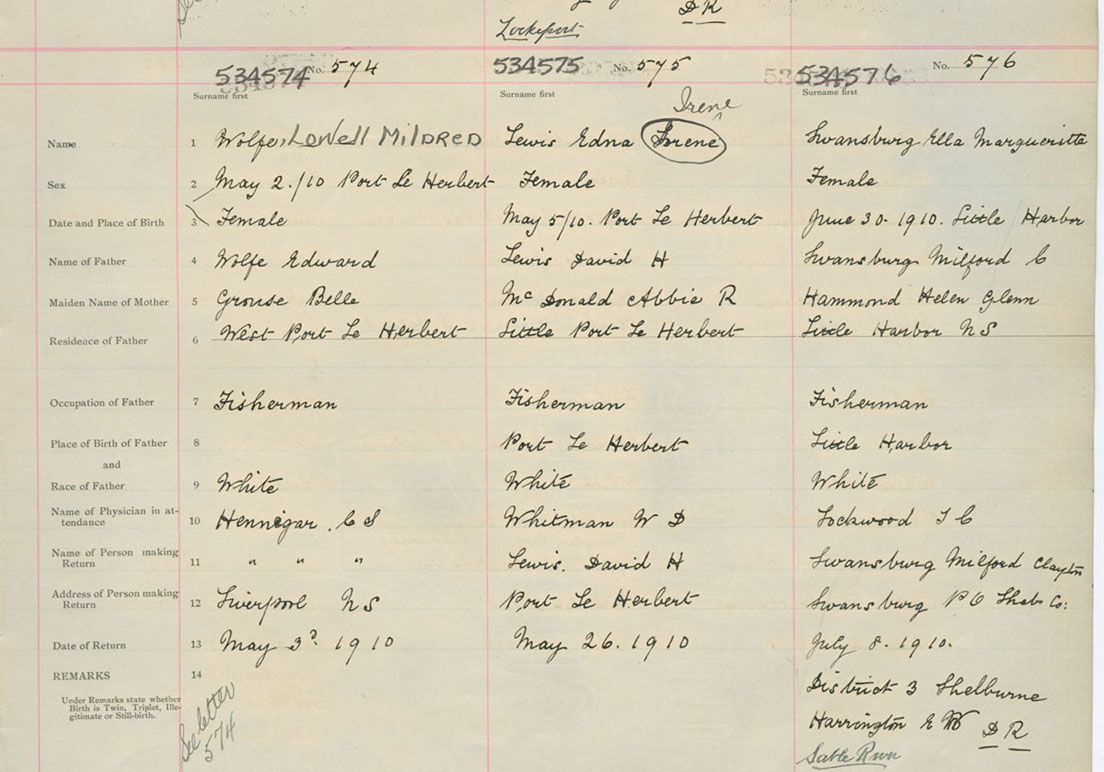 D R
Lockeport
534574 No. 574
534575 No. 575
534576 No. 576
Surname first
Surname first
Surname first
Irene
Name 1 Wolfe, Lowell Mildred
Lewis Edna Irene
Swansburg Ella Margueritte
Sex 2 May 2./10 Port Le Herbert
Female
Female
Date and Place of Birth 3 Female
May 5/10. Port Le Herbert
June 30. 1910. Little Harbor
Name of Father 4 Wolfe Edward
Lewis David H
Swansburg Milford C
Maiden Name of Mother 5 Grouse Belle
Mc Donald Abbie R
Hammond Helen Glenn
Residence of Father 6 West Port Le Herbert
Little Port Le Herbert
Little Harbor NS
Occupation of Father 7 Fisherman
Fisherman
Fisherman
Place of Birth of Father 8
Port Le Herbert
Little Harbor
and
Race of Father 9 White
White
White
Name of Physician in at-
tendance 10 Hennigar. C S
Whitman W D
Lockwood T C
Name of Person making
Return 11 " " "
Lewis. David H
Swansburg Milford Clayton
Address of Person making
Return 12 Liverpool NS
Port Le Herbert
Swansburg P O Shelb Co:
Date of Return 13 May 3? 1910
May 26. 1910
July 8. 1910.
REMARKS 14
Under Remarks state whether
Birth is Twin, Triplet, Ille-
gitimate or Still-birth.
See letter
574
District 3 Shelburne
Harrington E W D R
Sable River